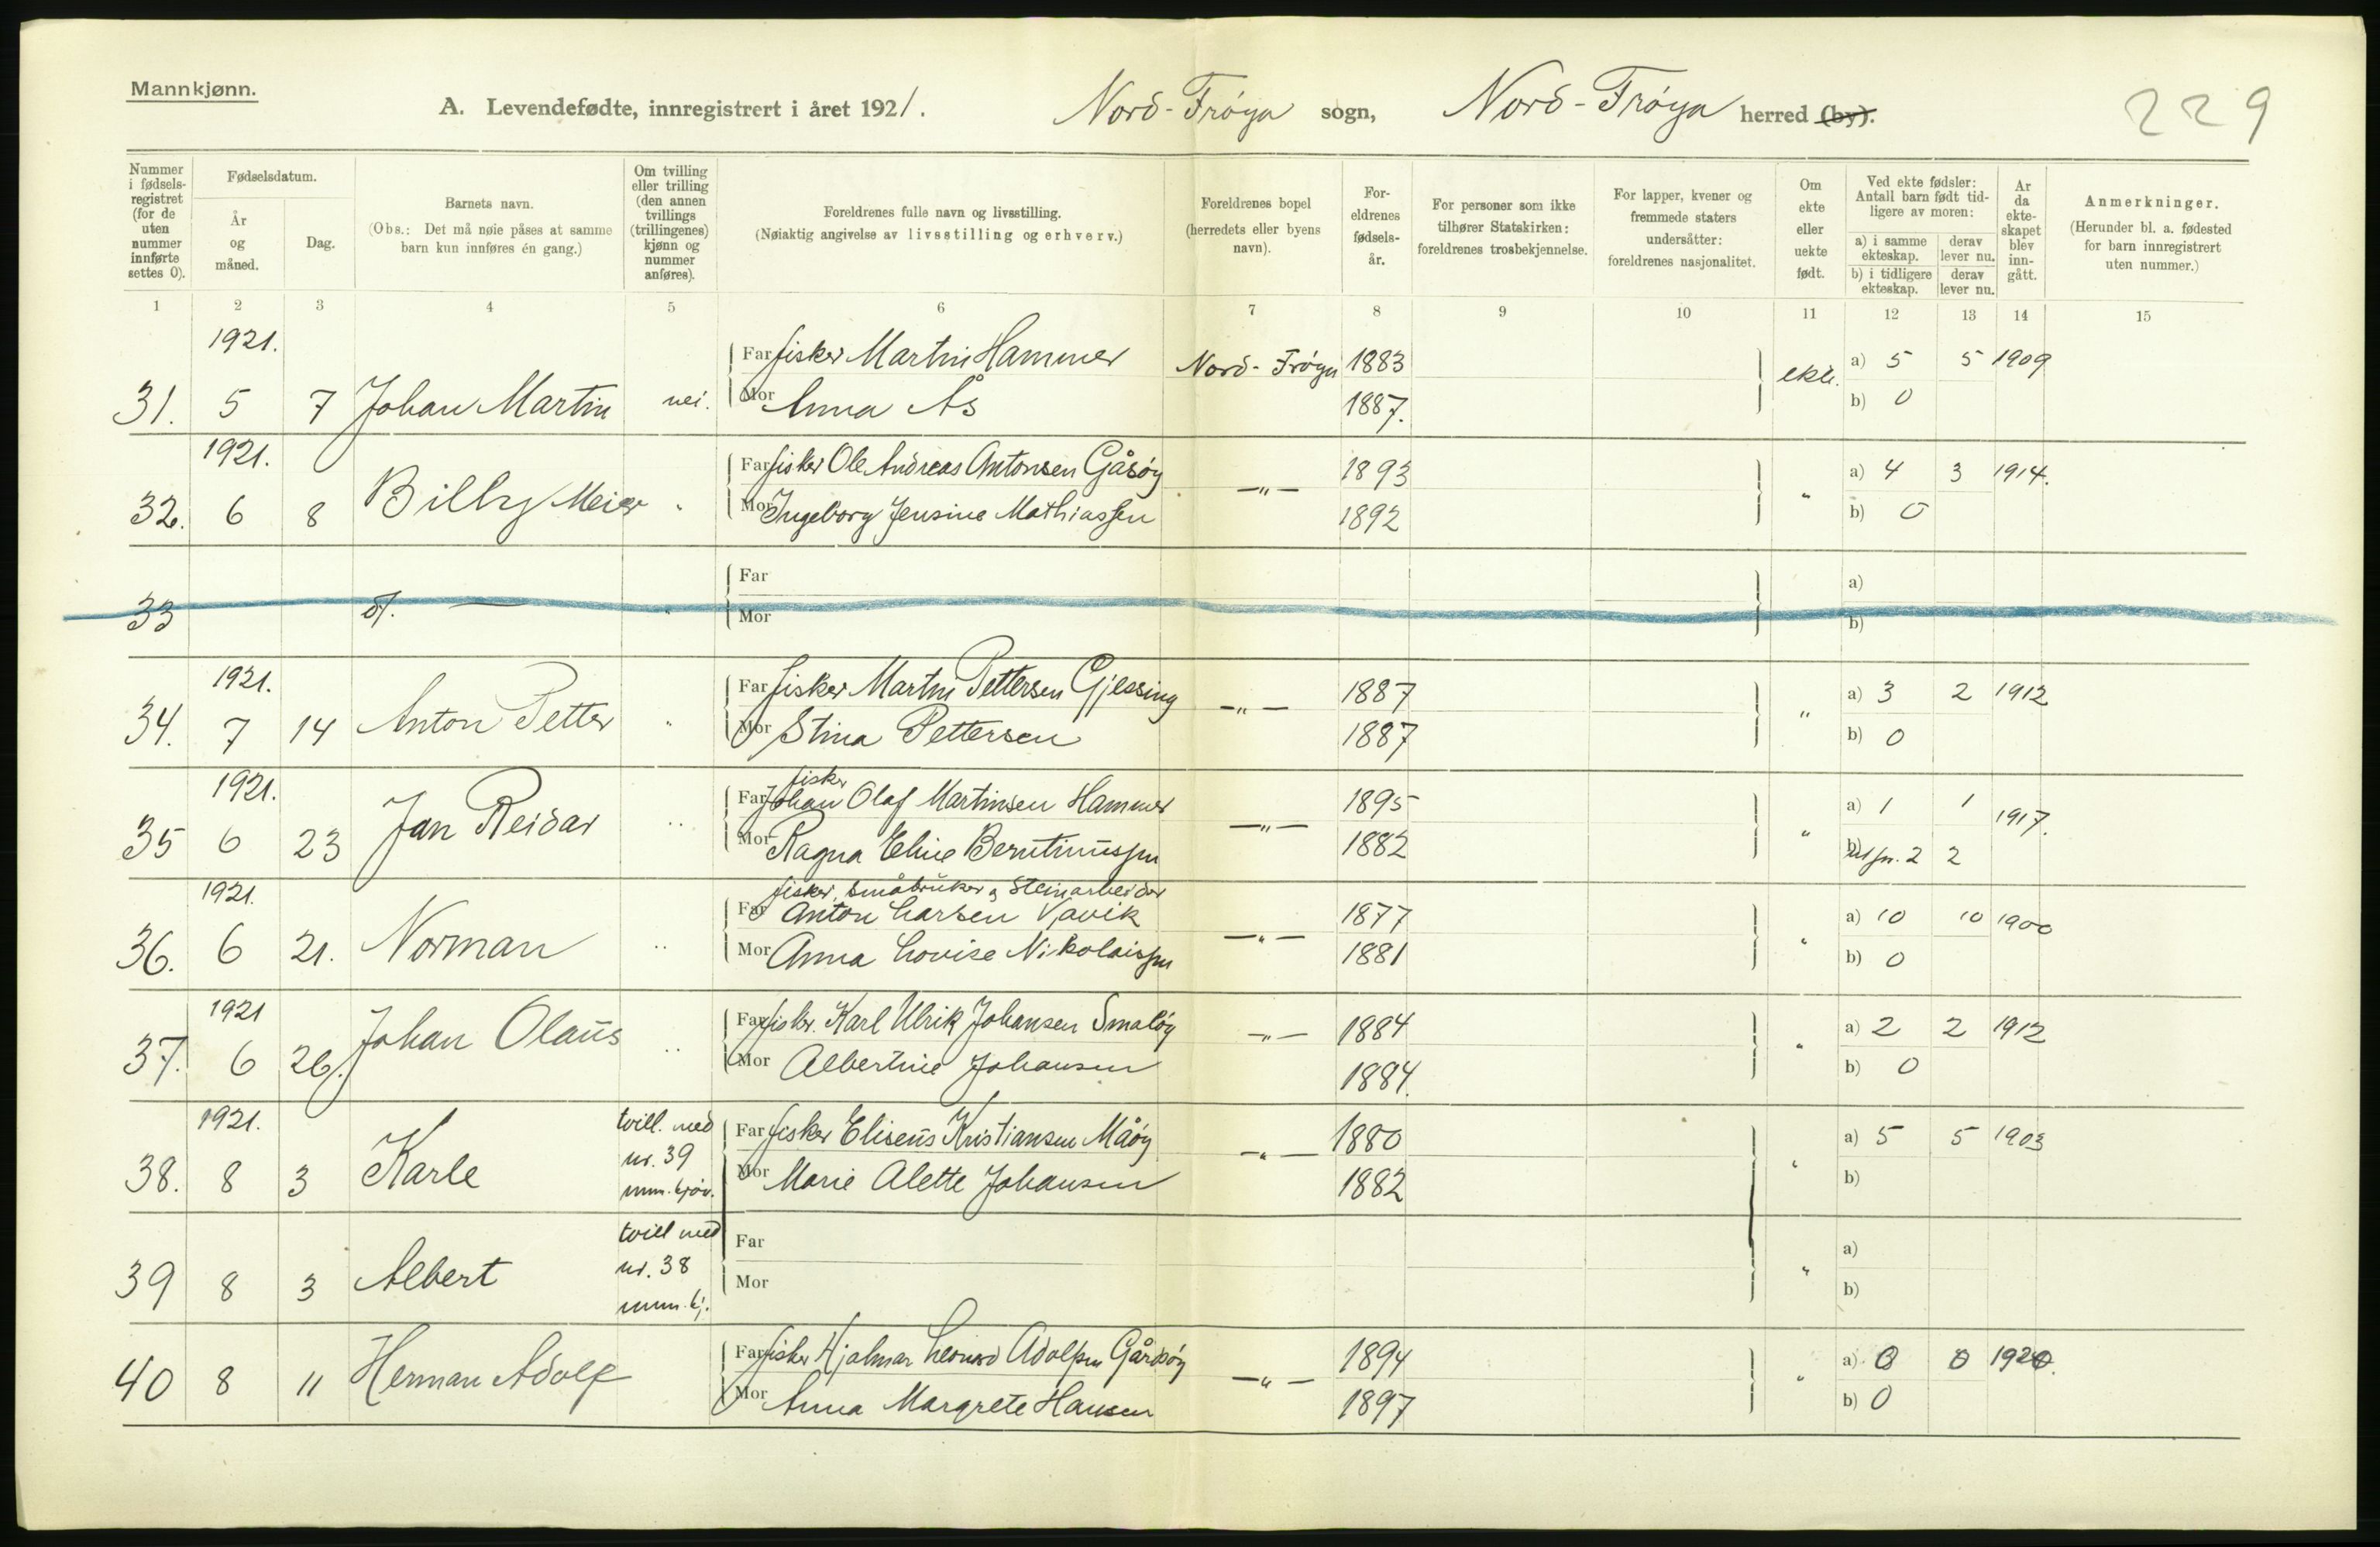 Mannkjønn.
A. Levendefødte, innregistrert i året 1921. Nord-Frøya sogn, Nord-Frøya herred (by). 229
Nummer i fødselsregistret (for de uten nummer innførte settes 0).
Fødselsdatum.
År og måned.
Dag.
Barnets navn.
(Obs.: Det må nøie påses at samme barn kun innføres én gang.)
Om tvilling eller trilling (den annen tvillings (trillingenes) kjønn og nummer anføres).
Foreldrenes fulle navn og livsstilling.
(Nøiaktig angivelse av livsstilling og erhverv.)
Foreldrenes bopel (herredets eller byens navn).
Foreldrenes fødselsår.
For personer som ikke tilhører Statskirken: foreldrenes trosbekjennelse.
For lapper, kvener og fremmede staters undersåtter: foreldrenes nasjonalitet.
Om ekte eller uekte født.
Ved ekte fødsler: Antall barn født tidligere av moren:
a) i samme ekteskap. derav lever nu.
b) i tidligere ekteskap. derav lever nu.
Ar da ekteskapet blev inngått.
Anmerkninger.
(Herunder bl. a. fødested for barn innregistrert uten nummer.)
1 2 3 4 5 6 7 8 9 10 11 12 13 14 15
1921.
Far fisker Martin Hammer Nord-Frøya 1883 ekte. a) 5 5 1909
31. 5 7 Johan Martin nei. Mor Anna Ås 1887. b) 0
1921.
Far fisker Ole Andreas Antonsen Gåsøy -"- 1893 " a) 4 3 1914.
32. 6 8 Billy Meier " Mor Ingeborg Jensine Mathiassen 1892 b) 0
Far a)
33 Mor b)
1921.
Far fisker Martin Pettersen Gjessing -"- 1887 " a) 3 2 1912
34. 7 14 Anton Petter " Mor Stina Pettersen 1887 b) 0
1921. fisker
Far Johan Olaf Martinsen Hammer -"- 1895 " a) 1 1 1917.
35 6 23 Jan Reidar " Mor Ragna Eline Berntinussen 1882 b) 2 2
1921. fisker, småbruker og steinarbeider
Far Anton Larsen Vavik -"- 1877 " a) 10 10 1900
36. 6 21. Norman " Mor Anna Lovise Nikolaisen 1881 b) 0
1921
Far fisker. Karl Ulrik Johansen Smaløy -"- 1884 " a) 2 2 1912
37. 6 26. Johan Olaus " Mor Albertine Johansen 1884. b) 0
1921. tvill. med
Far fisker Eliseus Kristiansen Måøy -"- 1880 " a) 5 5 1903
38. 8 3 Karle nr. 39 Mor Marie Alette Johansen 1882 b)
tvill med
Far a)
39 8 3 Albert nr. 38 Mor " b)
Far fisker Hjalmar Leonard Adolfsen Gårdsøy -"- 1894 " a) 0 0 1920.
40 8 11 Herman Adolf Mor Anna Margrete Hansen 1897 b) 0